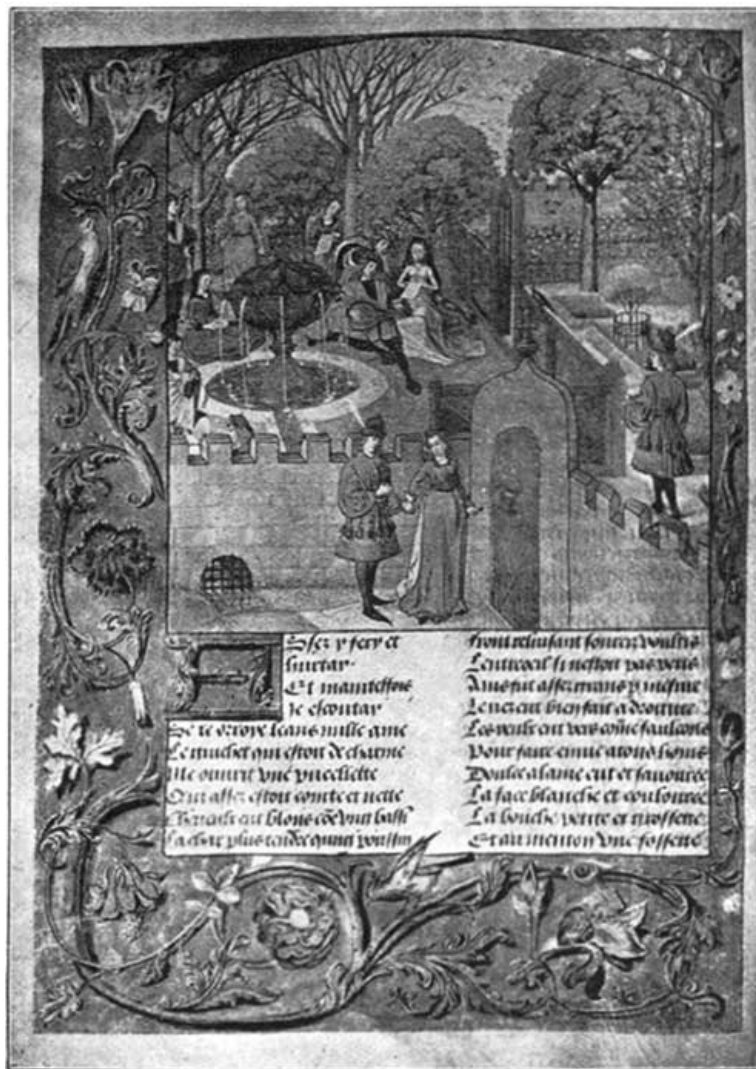 Assez y fery et
hurtar
Et maintesfois
je escoutar
Se je orroye leans nulle ame
Le guichet qui estoit de charme
Me ouvrit une pucellette
Qui assez estoit cointe et nette
Cheveulx eut blons cõe ung bassin
La char plus tendre qung poussin
Front reluisant sourcilz voultis
Lentreoeil si nestoit pas petis
Ains fut assez grans p mesure
Le nez eut bien fait a droiture
Les yeulx eut vers cõme faulcons
Pour faire envie a tous homs
Doulce alaine eut et savouree
La face blanche et coulouree
La bouche petite et grossette
Et au menton une fossette